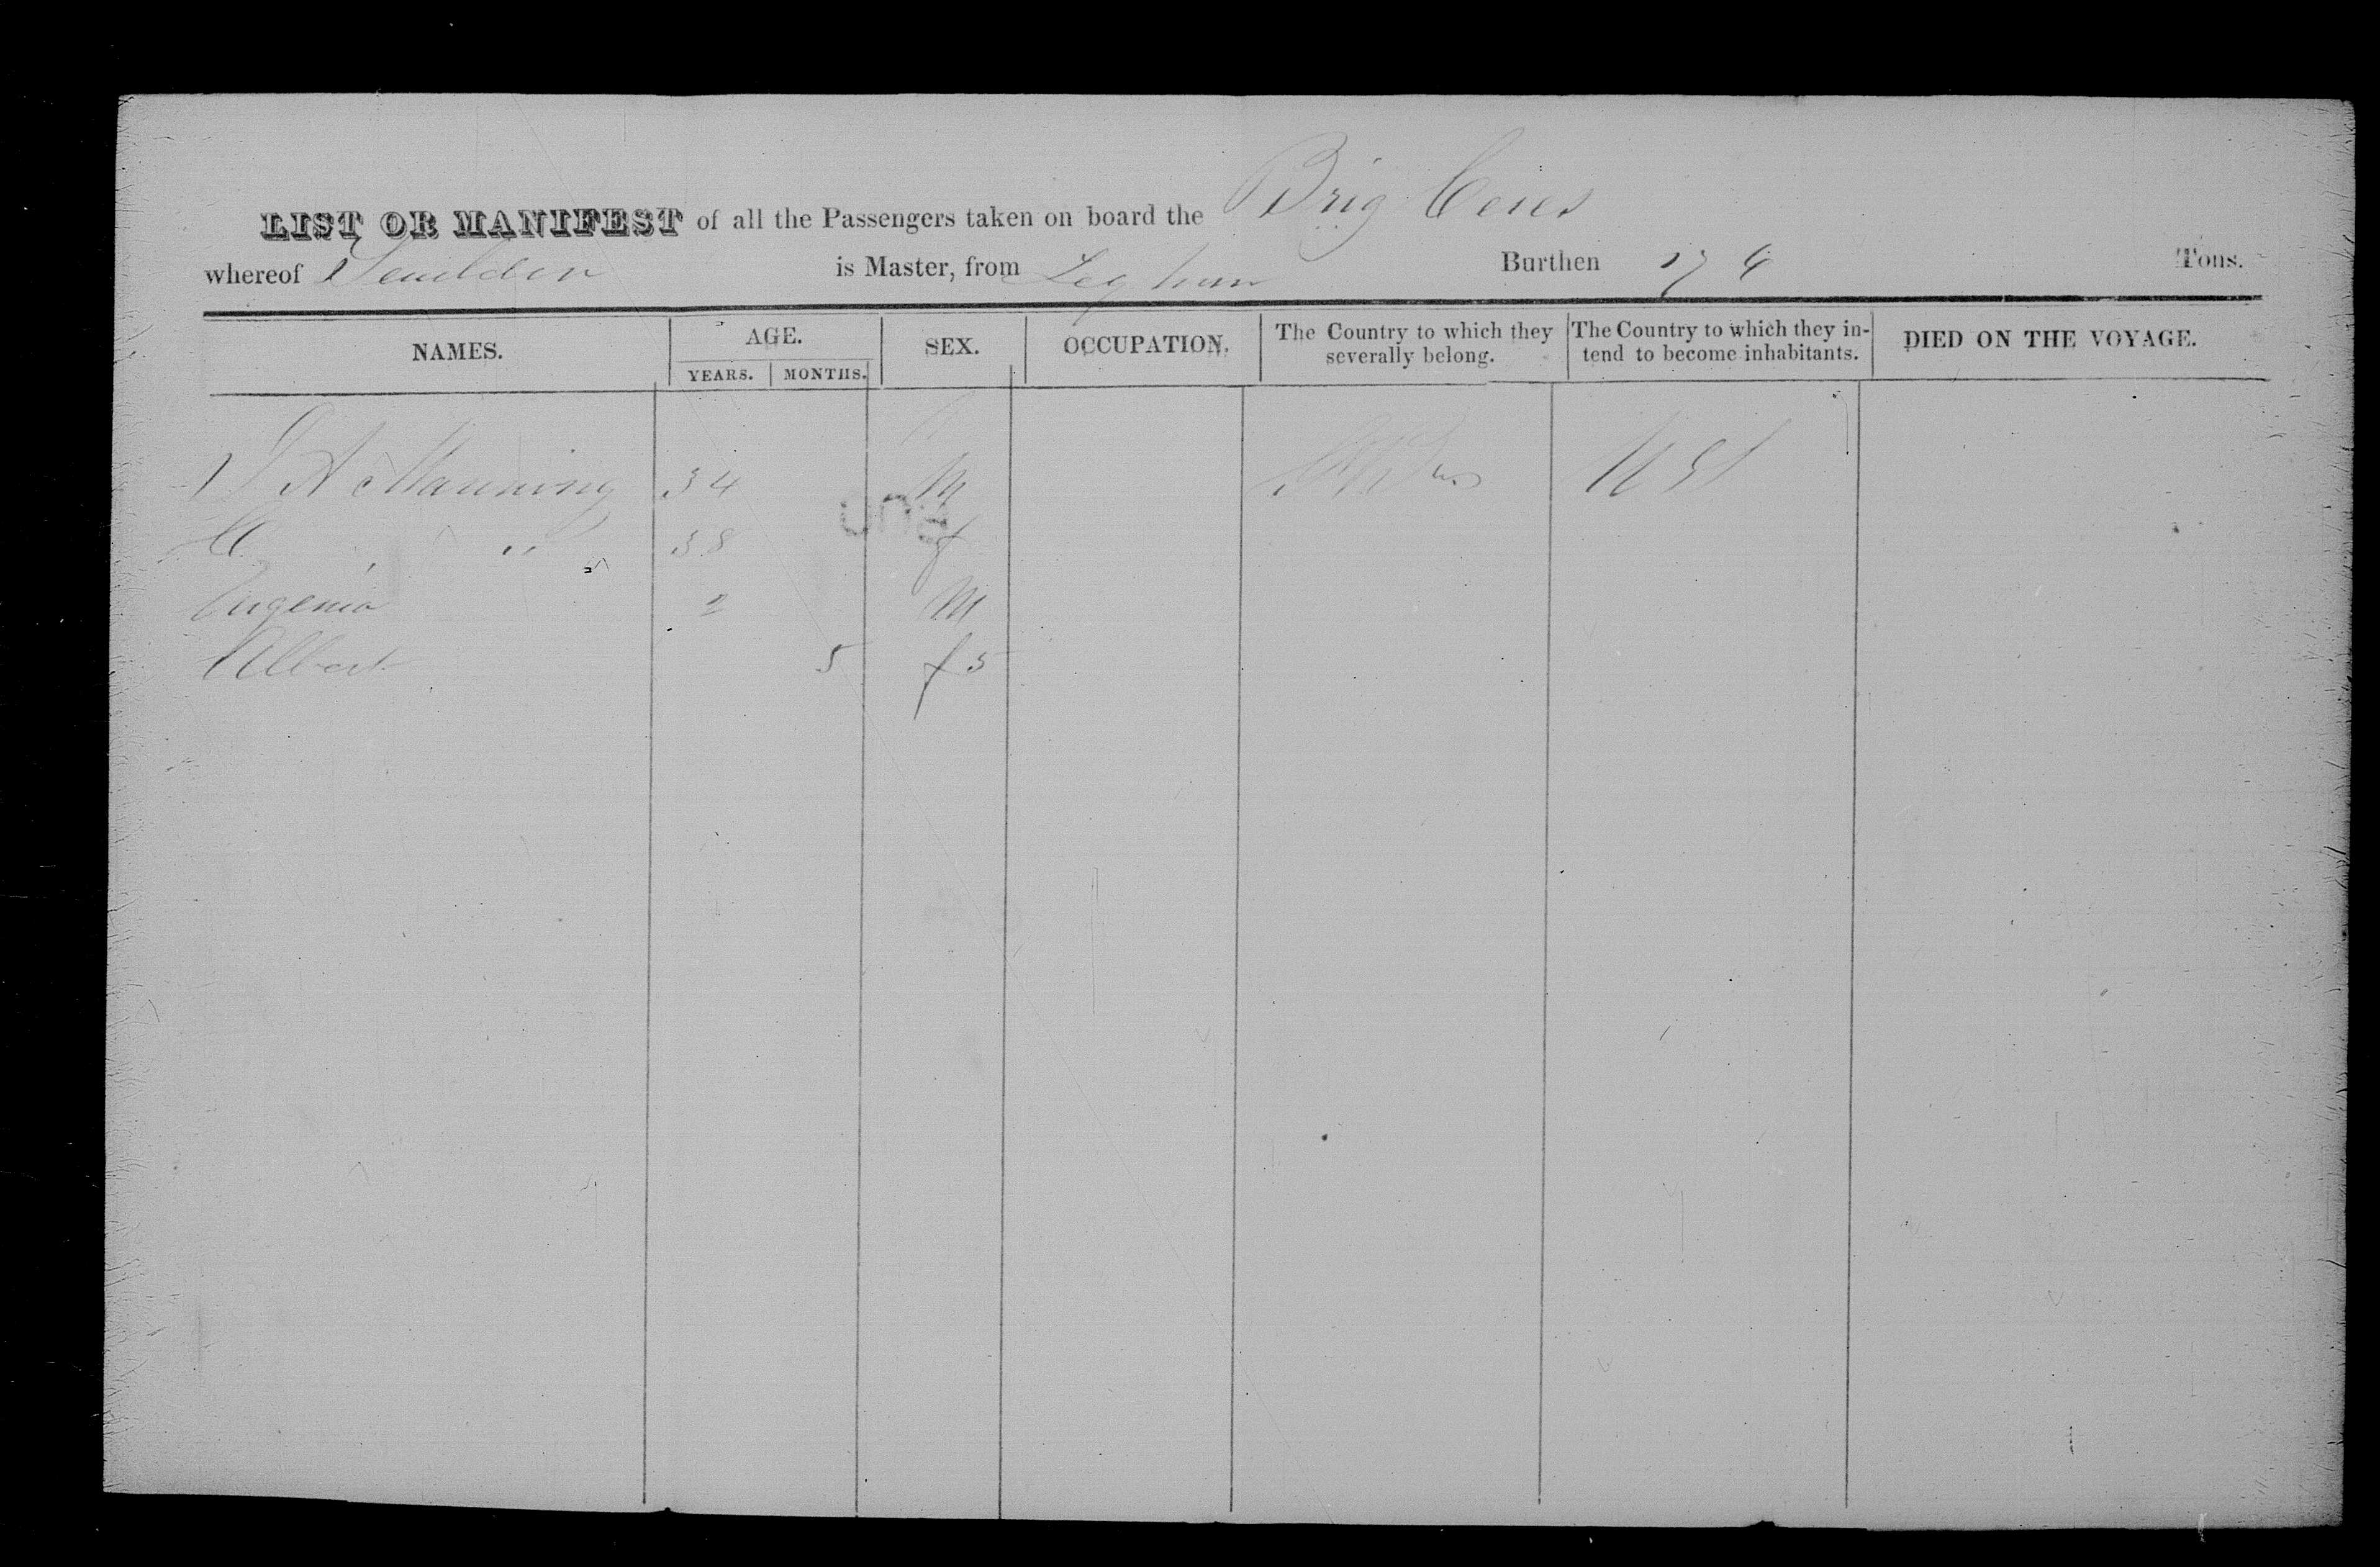 LIST OR MANIFEST of all the Passengers taken on board the Brig Ceres
whereof is Master, from Leghorn Burthen 174 Tons.
NAMES. AGE. SEX. OCCUPATION. The Country to which they severally belong. The Country to which they intend to become inhabitants. DIED ON THE VOYAGE.
YEARS. MONTHS.
A Manning 34 M U S
" 38 f
Eugenia 2 M
Albert 5 f 5